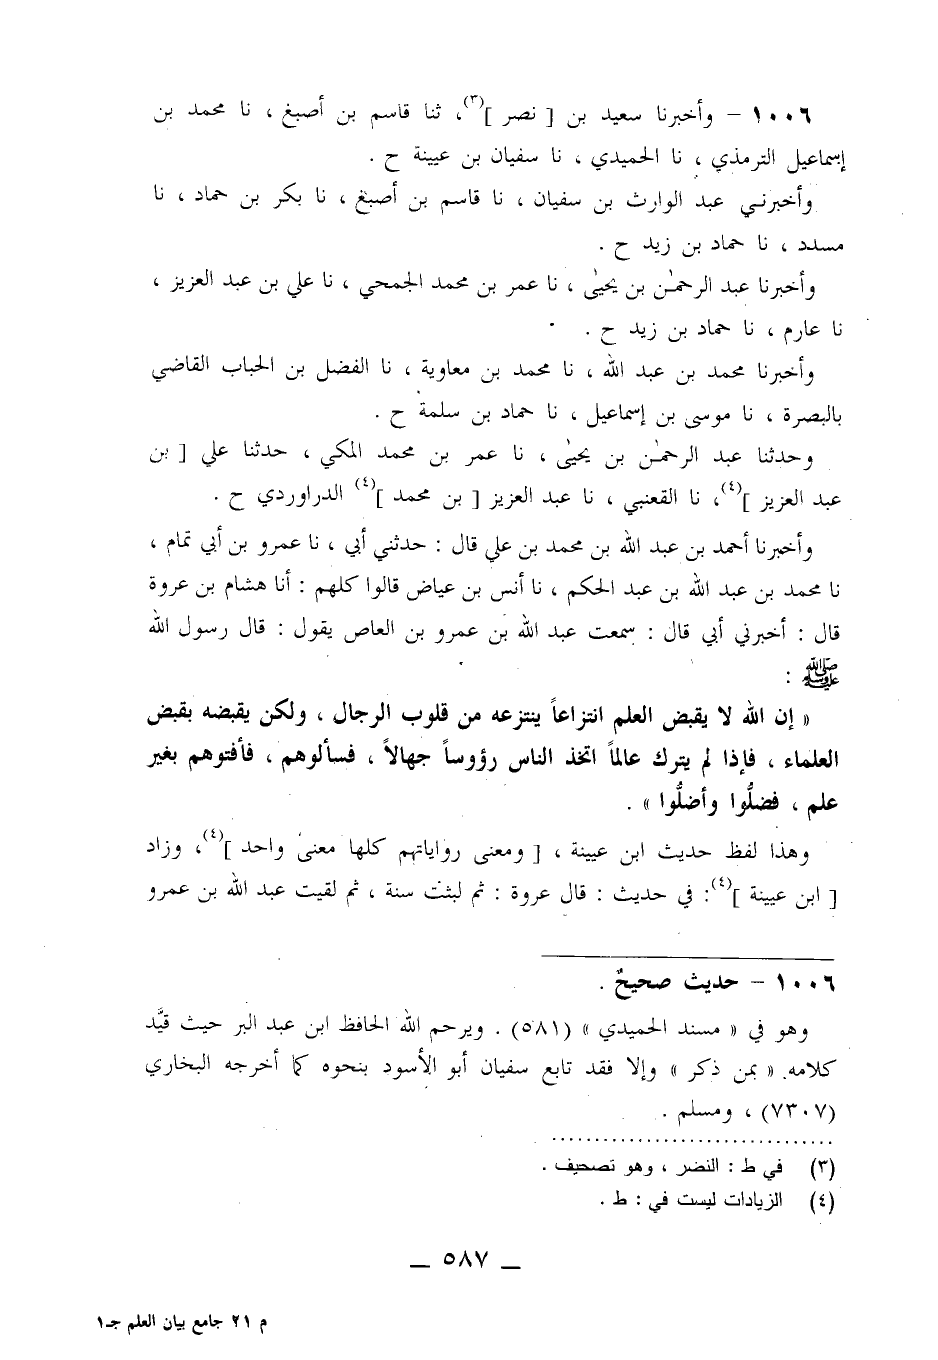 ١٠٠٦ - وأخبرنا سعيد بن [ نصر ](٣)، ثنا قاسم بن أصبغ ، نا محمد بن
إسماعيل الترمذي ، نا الحميدي ، نا سفيان بن عيينة ح .
وأخبرني عبد الوارث بن سفيان ، نا قاسم بن أصبغ ، نا بكر بن حماد ، نا
مسدد ، نا حماد بن زيد ح .
وأخبرنا عبد الرحمٰن بن يحيىٰ ، نا عمر بن محمد الجمحي ، نا علي بن عبد العزيز ،
نا عارم ، نا حماد بن زيد ح .
وأخبرنا محمد بن عبد الله ، نا محمد بن معاوية ، نا الفضل بن الحباب القاضي
بالبصرة ، نا موسى بن إسماعيل ، نا حماد بن سلمة ح .
وحدثنا عبد الرحمٰن بن يحيىٰ ، نا عمر بن محمد المكي ، حدثنا علي [ بن
عبد العزيز ](٤)، نا القعنبي ، نا عبد العزيز [ بن محمد ](٤) الدراوردي ح .
وأخبرنا أحمد بن عبد الله بن محمد بن علي قال : حدثني أبي ، نا عمرو بن أبي تمام ،
نا محمد بن عبد الله بن عبد الحكم ، نا أنس بن عياض قالوا كلهم : أنا هشام بن عروة
قال : أخبرني أبي قال : سمعت عبد الله بن عمرو بن العاص يقول : قال رسول الله
ﷺ :
« إن الله لا يقبض العلم انتزاعاً ينتزعه من قلوب الرجال ، ولكن يقبضه بقبض
العلماء ، فإذا لم يترك عالماً اتخذ الناس رؤوساً جهالاً ، فسألوهم ، فأفتوهم بغير
علم ، فضلُّوا وأضلُّوا » .
وهذا لفظ حديث ابن عيينة ، [ ومعنى رواياتهم كلها معنىً واحد ](٤)، وزاد
[ ابن عيينة ](٤): في حديث : قال عروة : ثم لبثت سنة ، ثم لقيت عبد الله بن عمرو
١٠٠٦ - حديث صحيحٌ .
وهو في « مسند الحميدي » (٥٨١) . ويرحم الله الحافظ ابن عبد البر حيث قيَّد
كلامه « بمن ذكر » وإلا فقد تابع سفيان أبو الأسود بنحوه كما أخرجه البخاري
(٧٣٠٧) ، ومسلم .
(٣) في ط : النضر ، وهو تصحيف .
(٤) الزيادات ليست في : ط .
ـ ٥٨٧ ـ
م ٢١ جامع بيان العلم جـ١